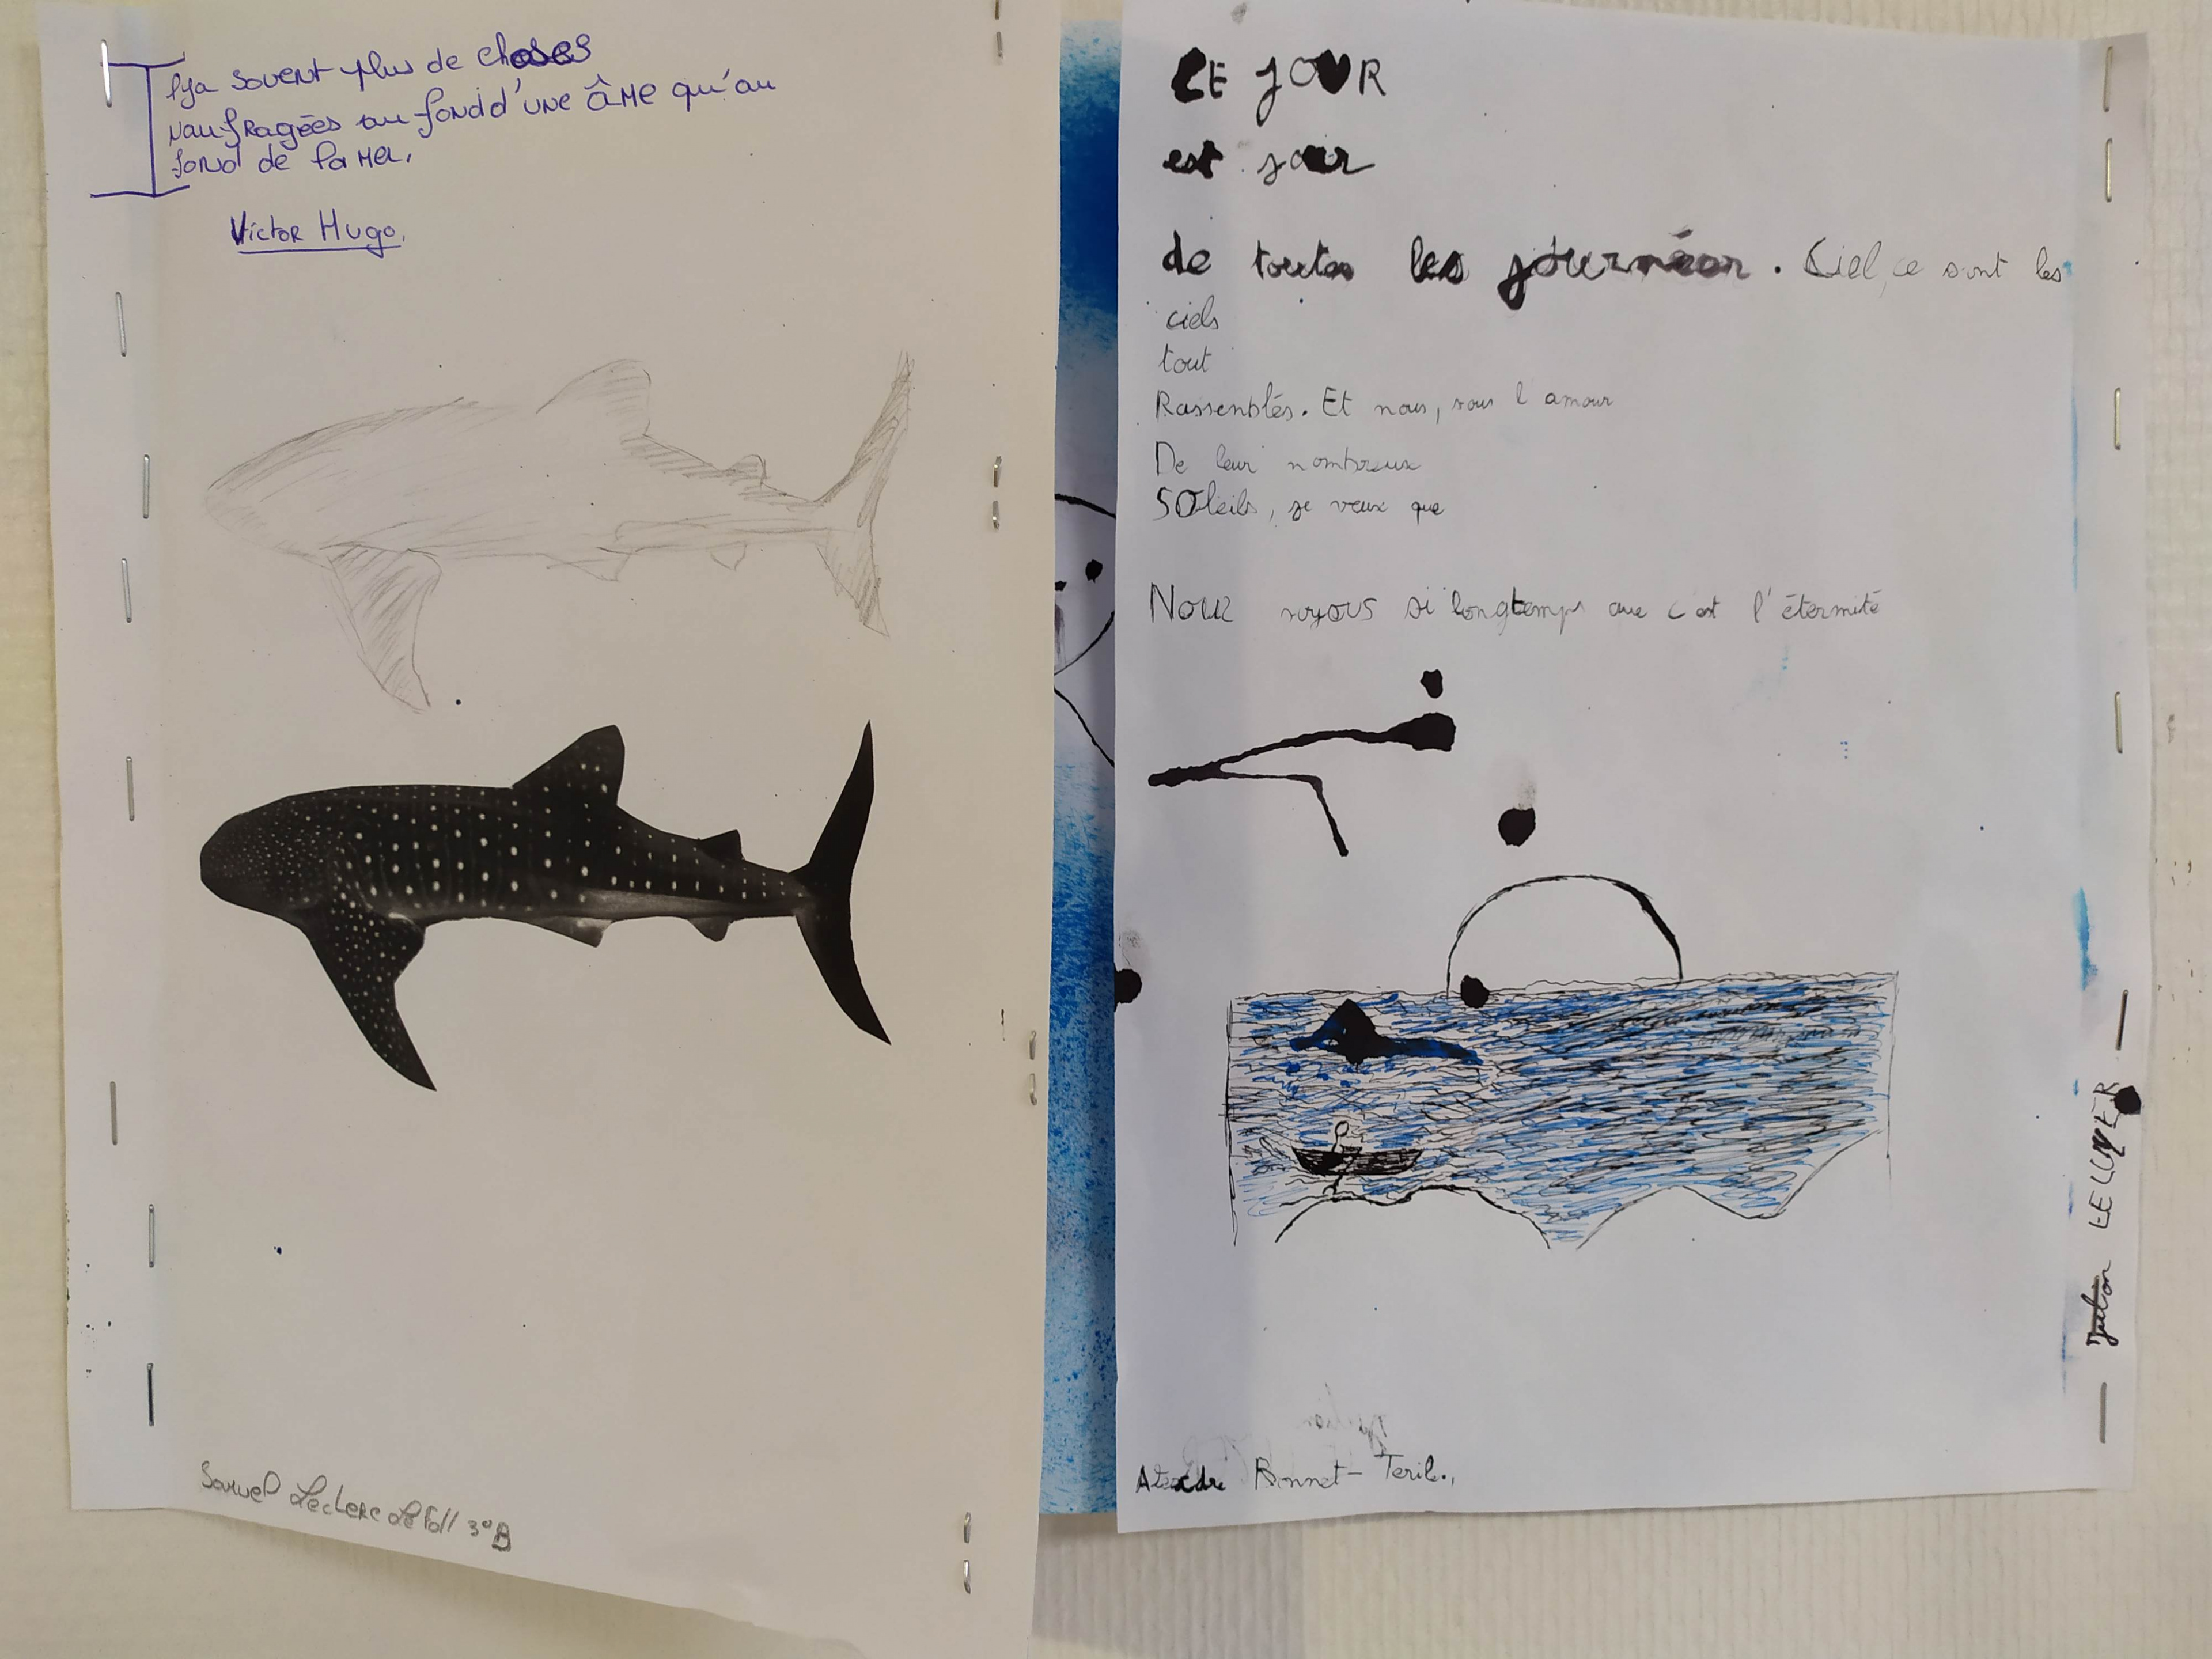 Il ya souent plus de choses
Naufragées au fond d'une âme qu'au
fond de la mer.
Victor Hugo.
Samuel Leclerc Le Foll 3°B
LE JOUR
est jour
de toutes les . Ciel, ce sont les
ciels
tout
Rassemblés. Et nous, sous l amour
De leur nombreux
SOleils, je veux que
Nouz soyous si longtemps que c est l'éternité
Bonnet-
LE